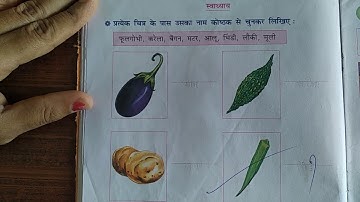 स्वाध्याय
प्रत्येक चित्र के पास उसका नाम कोष्ठक से चुनकर लिखिए :
फूलगोभी, करेला, बैंगन, मटर, आलू, भिंडी, लौकी, मूली